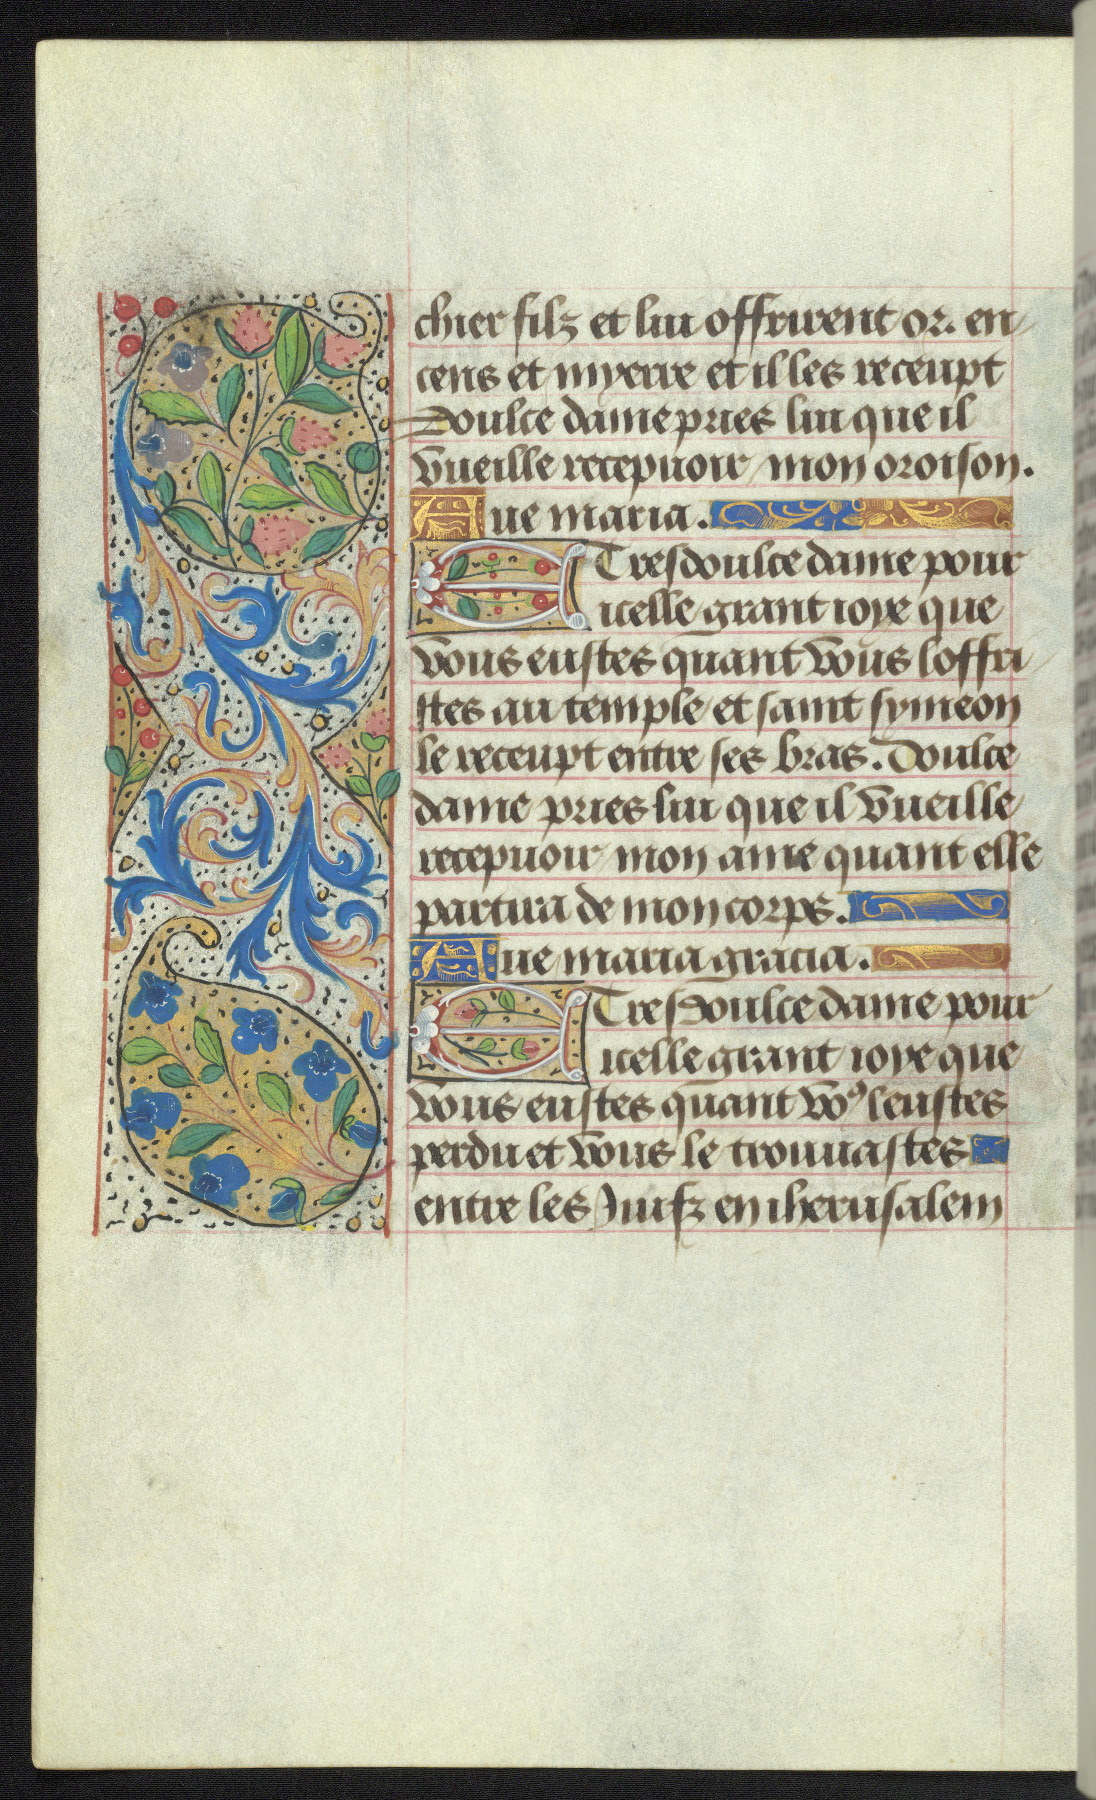 chier filz et lui offrirent or. en
cens et myerre et il les receupt
Doulce dame pries lui que il
vueille recepuoir mon oroison.
Aue maria.
E Tresdoulce dame pour
icelle grant ioye que
vous eustes quant vous loffri
stes au temple et saint symeon
le receupt entre ses bras. Doulce
dame pries lui que il vueille
recepuoir mon ame quant elle
partira de mon corps.
Aue maria gracia.
E Tresdoulce dame pour
icelle grant ioye que
vous eustes quant voꝰ leustes
perdu et vous le trouuastes
entre les Juifz en iherusalem